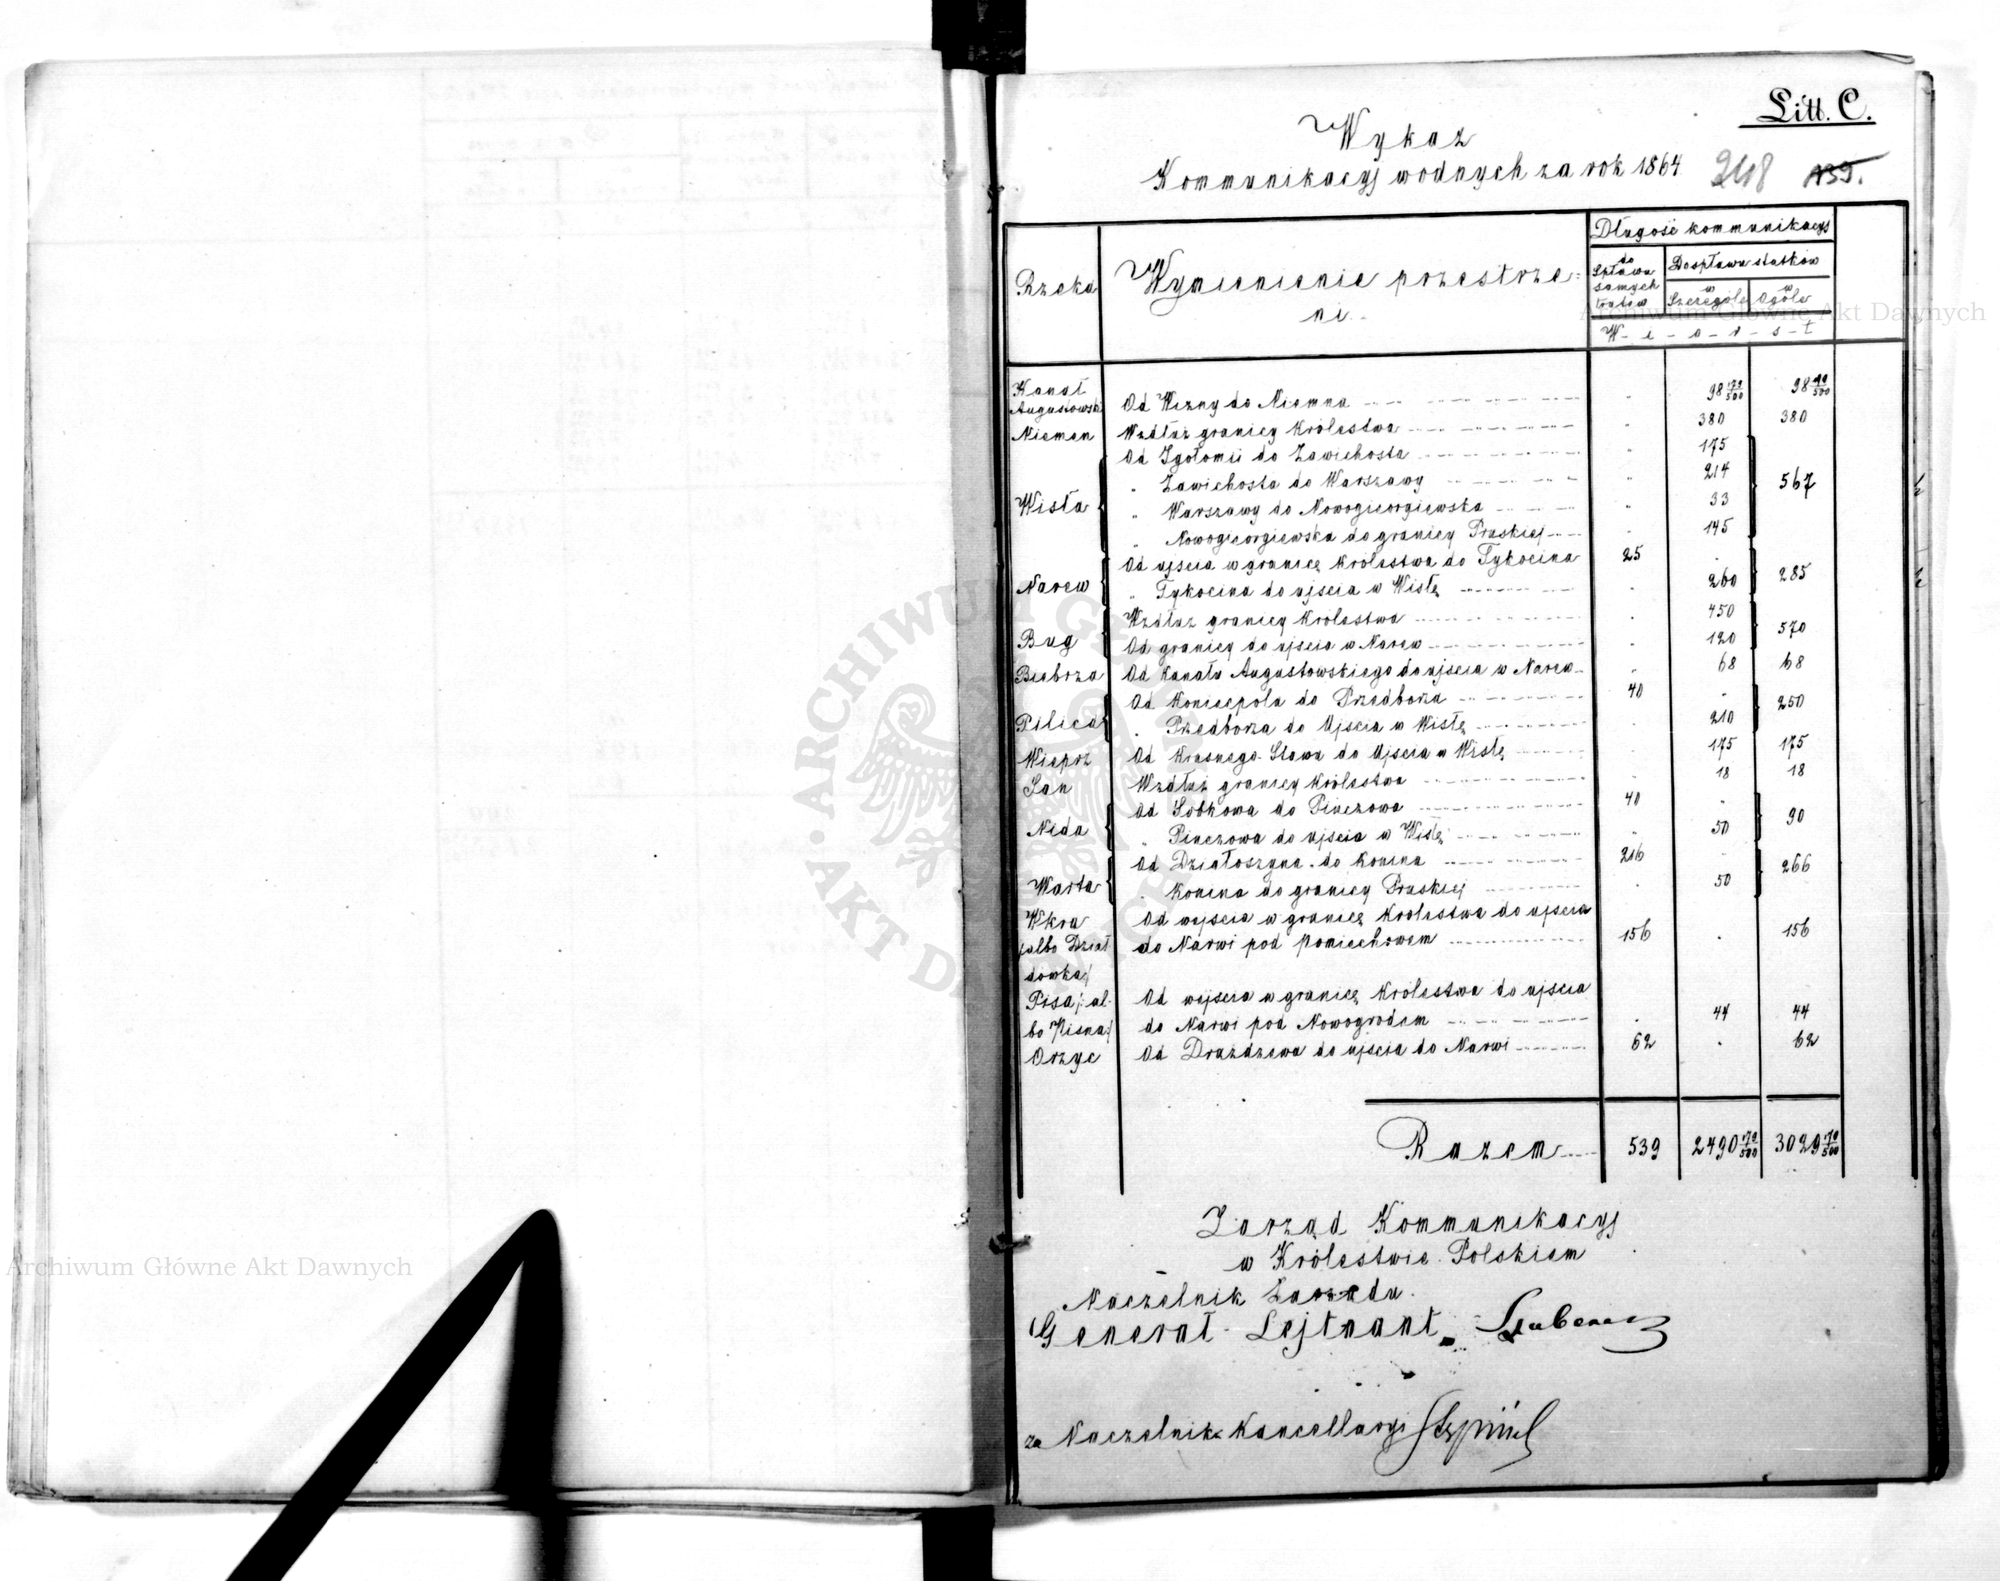 Litt. C.
Wykaz
Kommunikacyj wodnych za rok 1864 248 139.
Długość kommunikacyj
Rzeka Wymienienie przestrze= do Spławu samych tratów Do spławu statków
ni w Szczególe w Ogóle
W - i - o - r - s - t
Kanał
Augustowski Od Wizny do Niemna - 98 170/500 98 170/500
Niemen Wzdłuż granicy Królestwa - 380 380
Od Igołomii do Zawichosta - 175
" Zawichosta do Warszawy - 214
Wisła " Warszawy do Nowogieorgiewska - 33 567
" Nowogieorgiewska do granicy Pruskiej - 145
Od ujscia w granicę Królestwa do Tykocina 25 -
Narew " Tykocina do ujscia w Wisłę - 260 285
Wzdłuż granicy Królestwa - 450
Bug Od granicy do ujscia w Narew - 120 570
Biebrza Od Kanału Augustowskiego do ujscia w Narew - 68 68
Od Koniecpola do Przedborza 40 -
Pilica " Przedborza do Ujscia w Wisłę - 210 250
Wieprz Od Krasnego-Stawu do Ujscia w Wisłę - 175 175
San Wzdłuż granicy Królestwa - 18 18
Od Sobkowa do Pinczowa 40 -
Nida " Pinczowa do ujscia w Wisłę - 50 90
Od Działoszyna do Konina 216 -
Warta " Konina do granicy Pruskiej - 50 266
Wkra Od wejscia w granicę Królestwa do ujscia
/albo Dział do Narwi pod Pomiechowem 156 - 156
dówka/
Pisa /: al- Od wejscia w granicę Królestwa do ujscia
bo Pisna/ do Narwi pod Nowogrodem - 44 44
Orzyc Od Drużdzewa do ujscia do Narwi 62 - 62
Razem 539 2490 170/500 3029 170/500
Zarząd Kommunikacyj
w Królestwie Polskiem
Naczelnik Zarządu
Generał-Lejtnant
za Naczelnika Kancellaryi
Archiwum Główne Akt Dawnych
Archiwum Główne Akt Dawnych
ARCHIWUM GŁÓWNE AKT DAWNYCH